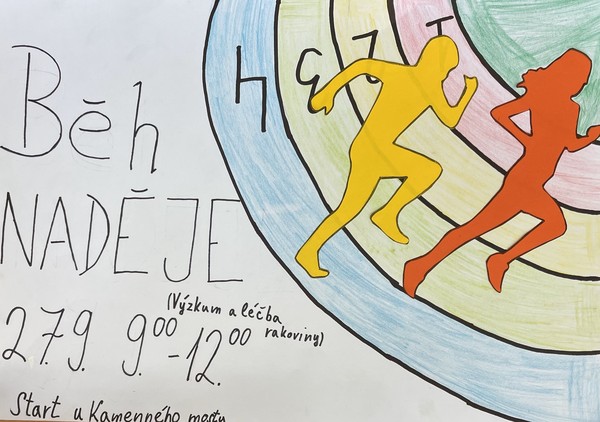 Běh
NADĚJE
(Výzkum a léčba
rakoviny)
27.9. 9⁰⁰-12⁰⁰.
Start u Kamenného mostu